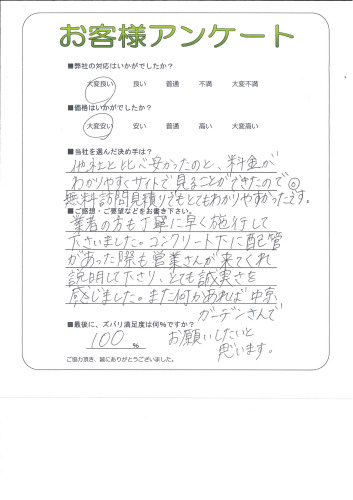 お客様アンケート
■弊社の対応はいかがでしたか？
大変良い 良い 普通 不満 大変不満
■価格はいかがでしたか？
大変安い 安い 普通 高い 大変高い
■当社を選んだ決め手は？
他社と比べ安かったのと、料金が
わかりやすくサイトで見ることができたので◎
無料訪問見積りでもとてもわかりやすかったです。
■ご感想・ご要望などをお書き下さい。
業者の方も丁寧に早く施行して
下さいました。コンクリート下に配管
があった際も営業さんが来てくれ
説明して下さり、とても誠実さを
感じました。また何かあれば中京
ガーデンさんで
お願いしたいと
思います。
■最後に、ズバリ満足度は何％ですか？
100 ％
ご協力頂き、誠にありがとうございました。